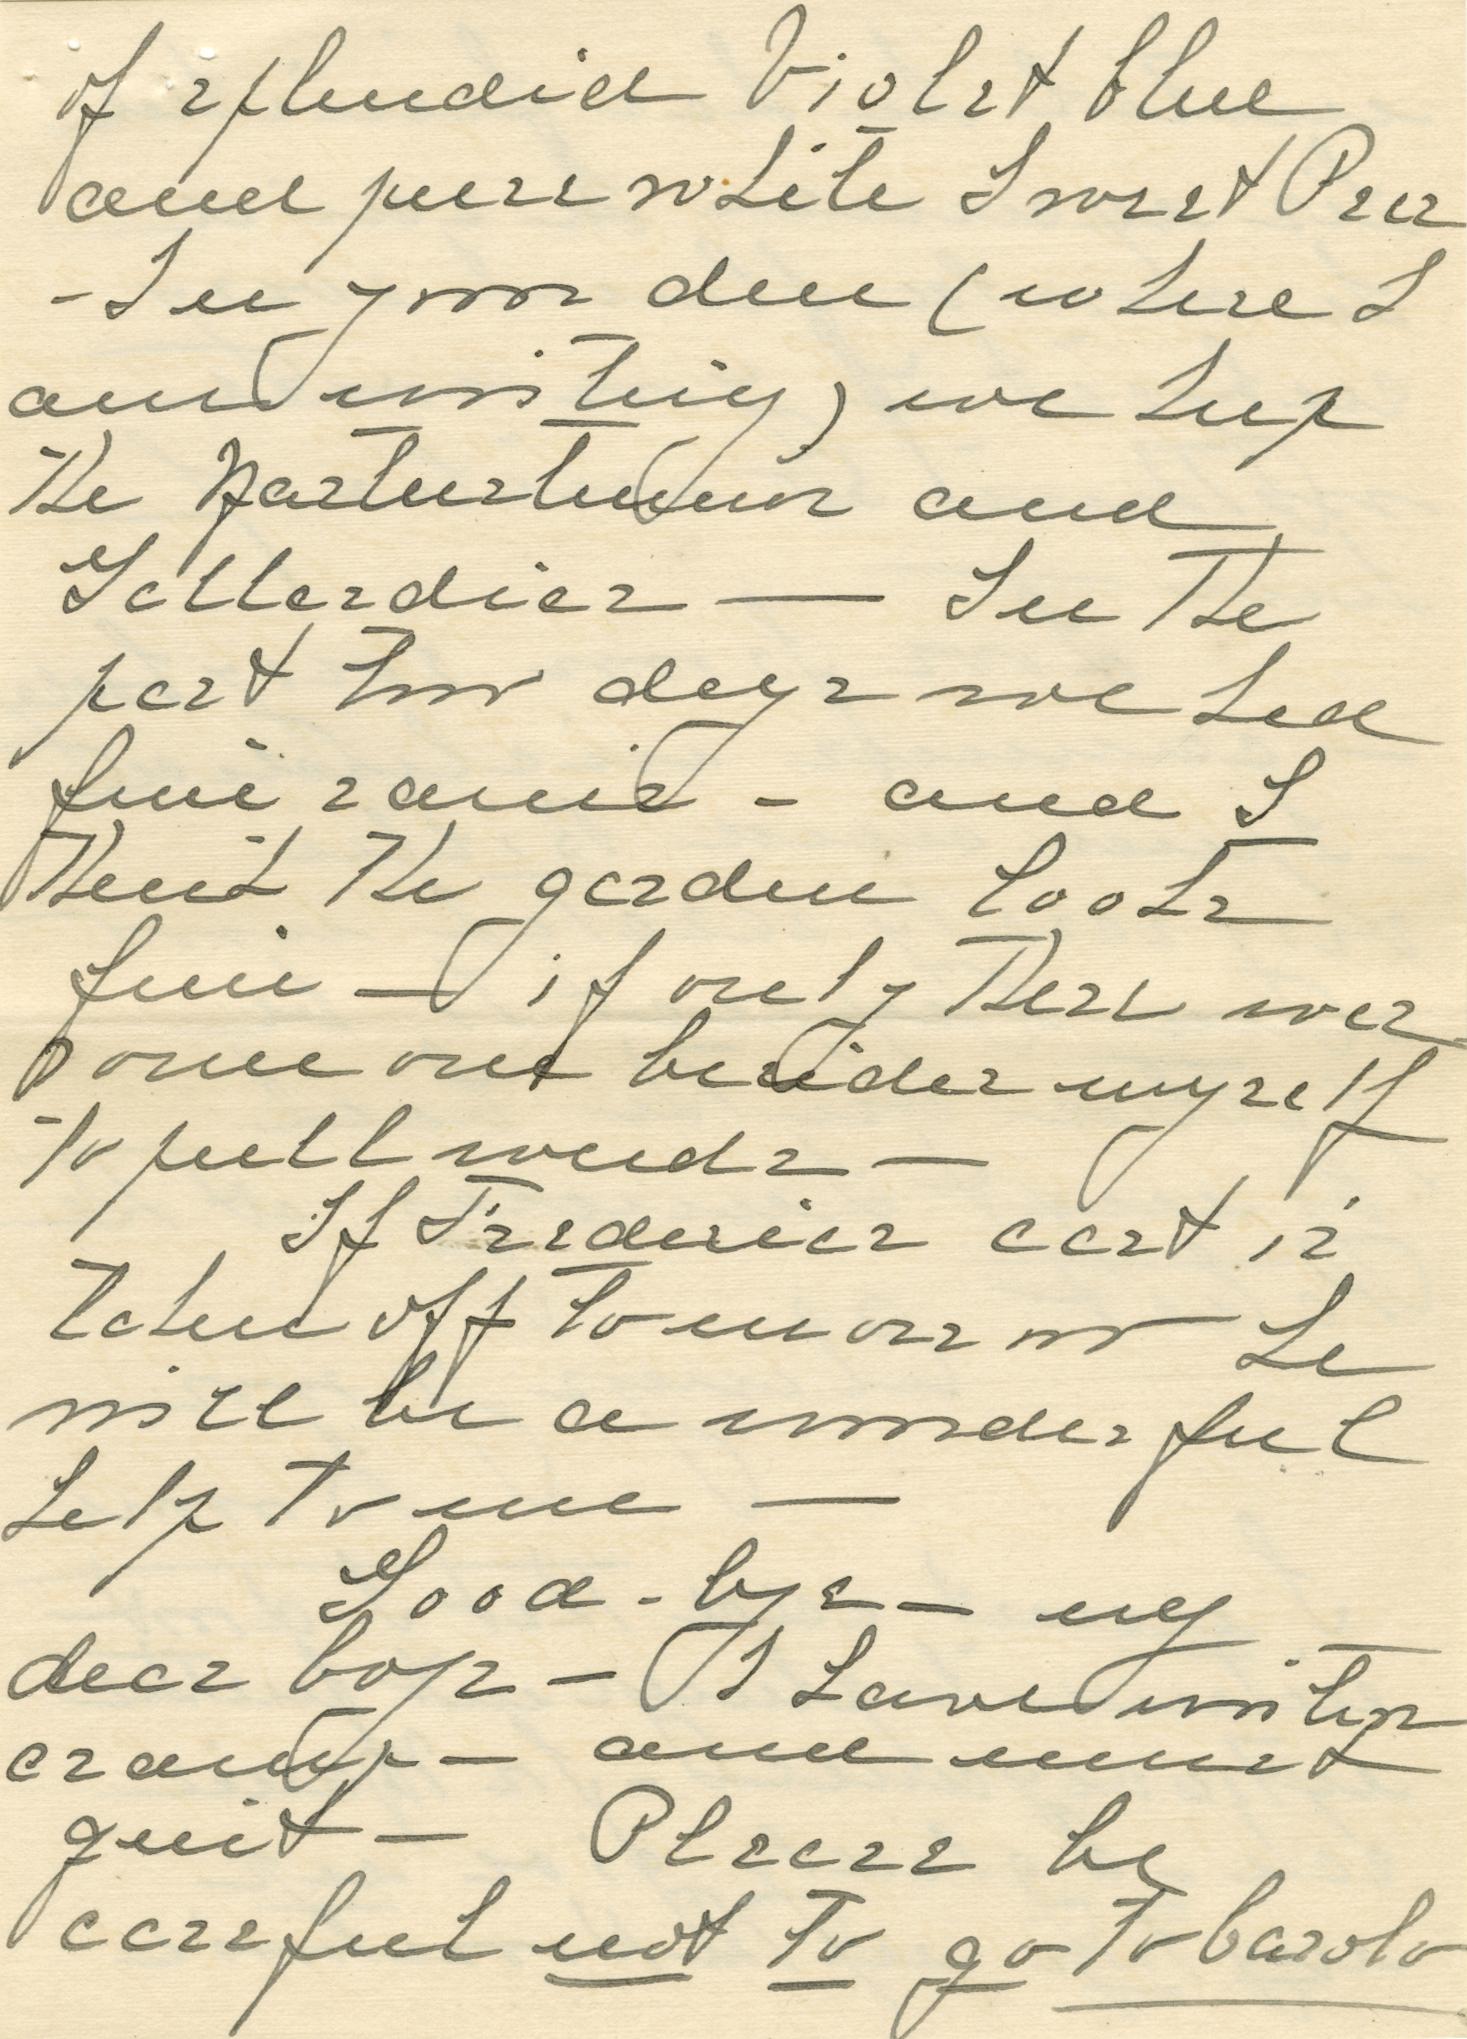 of splendid violet blue
and pure white Sweet Peas
- In your den (where I
am writing) we keep
the Nasturtium and
Gallardias — In the
past two days we had
fine rains - and I
think the garden looks
fine — if only there was
some one besides myself
to pull weeds —
If Frederics cast is
taken off tomorrow he
will be a wonderful
help to me —
Good-bye — my
dear boys — I have writers
cramp — and must
quit — Please be
careful not to go to